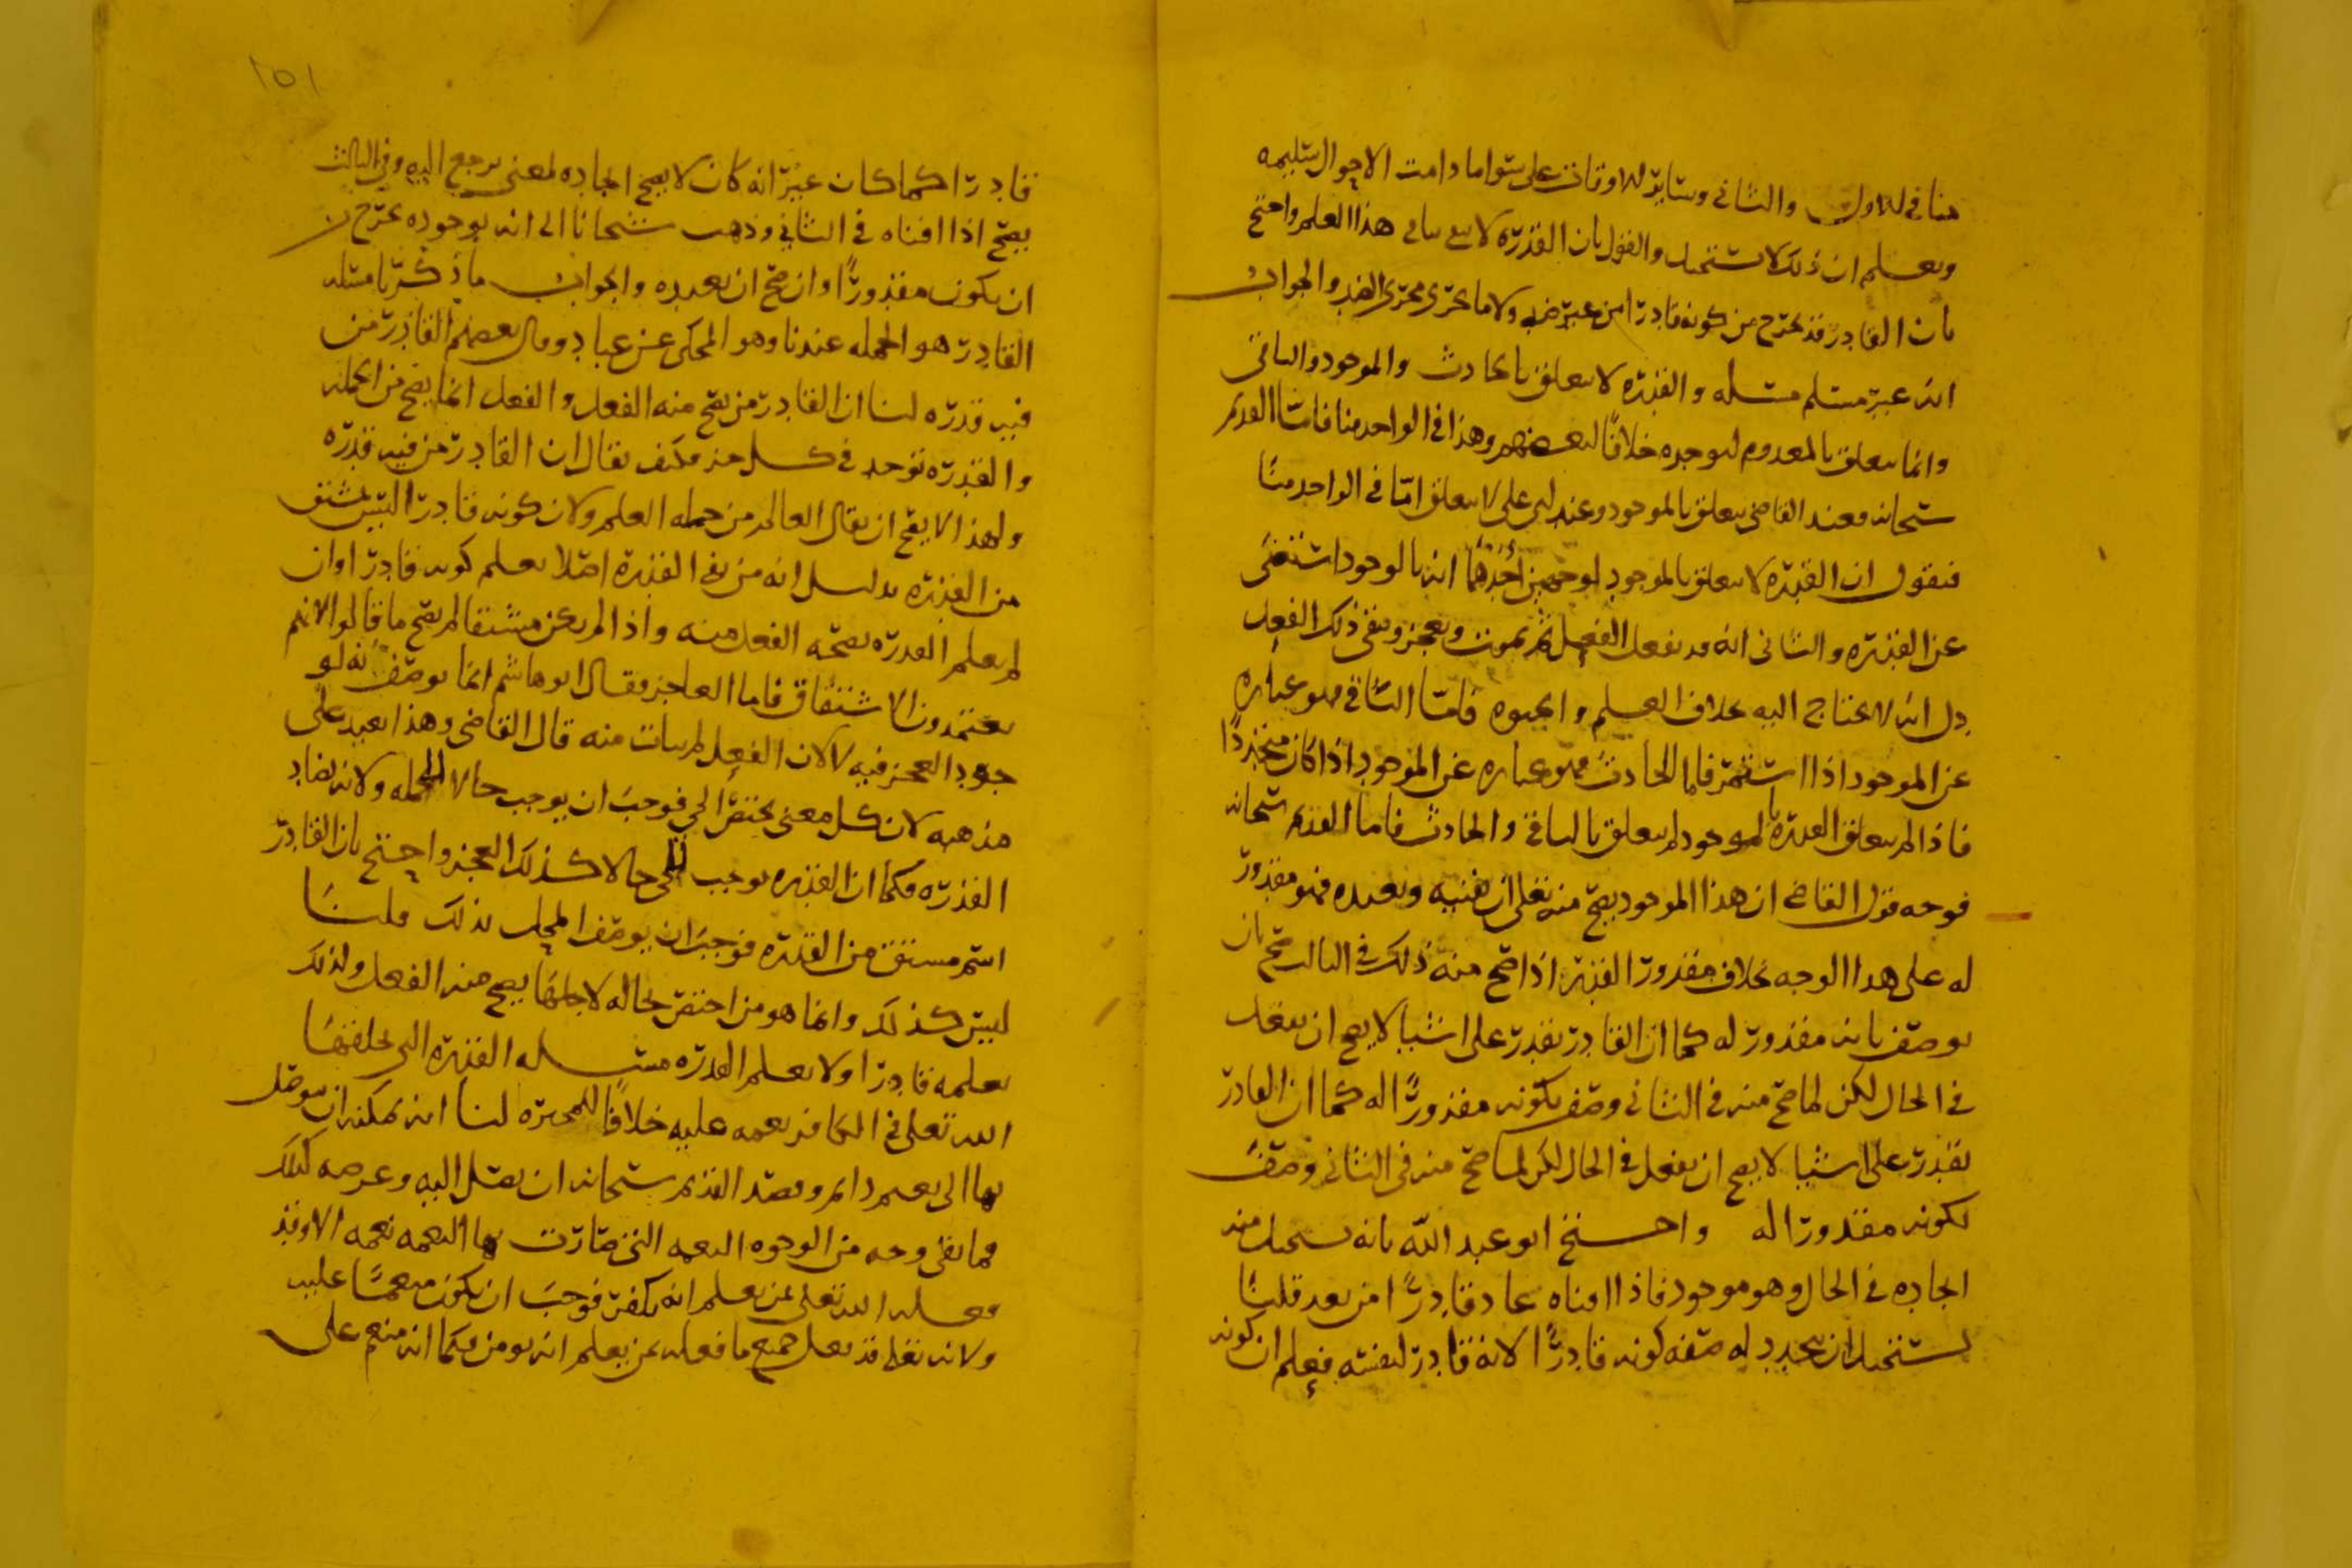 منا في الاول والثاني وسائر الاوقات على سوا ما دامت الاحوال سليمه
ويعلم ان ذلك لا يستحيل والقول بان القدره لا سما في هذا العلم واحتج
بان القادر قد يخرج من كونه قادرا من غير ضد ولا ما يجري مجرى الضد والجواب
انه غير مسلم مسله والقدره لا يتعلق بالحادث والموجود والباقي
وانما يتعلق بالمعدوم ليوجده خلافا لبعضهم وهذا في الواحد منا فاما القديم
سبحانه فعند القاضي يتعلق بالموجود وعند ابي علي لا يتعلق اما في الواحد منا
فنقول ان القدره لا يتعلق بالموجود لوجهين احدهما انه بالوجود استغنى
عن القدره والثاني انه قد يفعل الفعل ثم يموت ويعجز ويبقى ذلك الفعل
دل انه لا يحتاج اليه بخلاف العلم والحيوه فاما الباقي فهو عباره
عن الموجود اذا استمر فاما الحادث فهو عباره عن الموجود اذا كان متجددا
فاذا لم يتعلق القدره بالموجود لم يتعلق بالباقي والحادث فاما القديم سبحانه
فوجه قول القاضي ان هذا الموجود يصح منه تعلى ان يفنيه ويعيده فهو مقدور
له على هذا الوجه بخلاف مقدور القدر اذا صح منه ذلك في الثالث صح بان
يوصف بانه مقدور له كما ان القادر يقدر على اشيا لا يصح ان يفعل
في الحال لكن لما صح منه في الثاني وصف بكونه مقدورا له كما ان القادر
يقدر على اشيا لا يصح ان يفعل في الحال لكن لما صح منه في الثاني وصف
بكونه مقدورا له واحتج ابو عبد الله بانه يستحيل منه
ايجاده في الحال وهو موجود فاذا افناه عاد قادرا من بعد قلنا
يستحيل ان يتجدد له صفه كونه قادرا لانه قادر لنفسه فعلم ان كونه
١٥١
قادرا كما كان غير انه كان لا يصح ايجاده لمعنى يرجع اليه وفي الثالث
يصح اذا افناه في الثاني وذهب شيخانا الى انه بوجوده خرج
ان يكون مقدورا وان صح ان يعيده والجواب ما ذكرنا مسله
القادر هو الجمله عندنا وهو المحكي عن عباد وقال بعضهم القادر من
فيه قدره لنا ان القادر من يصح منه الفعل والفعل انما يصح من الجمله
والقدره توجد في كل جزء فكيف يقال ان القادر من فيه قدره
ولهذا لا يصح ان يقال العالم من حمله العلم ولان كونه قادرا ليس بمشتق
من القدره بدليل انه من نفى القدره اصلا يعلم كونه قادرا وان
لم يعلم القدره بصحه الفعل منه واذا لم يكن مشتقا لم يصح ما قالوا لانهم
يعتمدون الاشتقاق فاما العاجز فقال ابو هاشم انما يوصف انه لو
وجود العجز فيه لا لان الفعل لم يتات منه قال القاضي وهذا بعيد على
مذهبه لان كل معنى يختص الحي فوجب ان يوجب حالا للجمله ولانه يضاد
القدره فكما ان القدره توجب للحي حالا كذلك العجز واحتج بان القادر
اسم مشتق من القدره فوجب ان يوصف المحل بذلك قلنا
ليس كذلك وانما هو من اختص بحاله لاجلها يصح منه الفعل ولذلك
يعلمه قادرا ولا يعلم القدره مسله القدره التي يخلقها
الله تعلى في الكافر نعمه عليه خلافا للمجبره لنا انه يمكنه ان يتوصل
بها الى نعيم دايم وقصد القديم سبحانه ان يصل اليه وعرضه لذلك
فما بقى وجه من الوجوه النعمه التي صارت بها النعمه نعمه الا وقد
فعله الله تعلى بمن يعلم انه يكفر فوجب ان يكون منعما عليه
ولانه تعلى قد فعل جميع ما فعله بمن يعلم انه يومن فكما انه منعم على